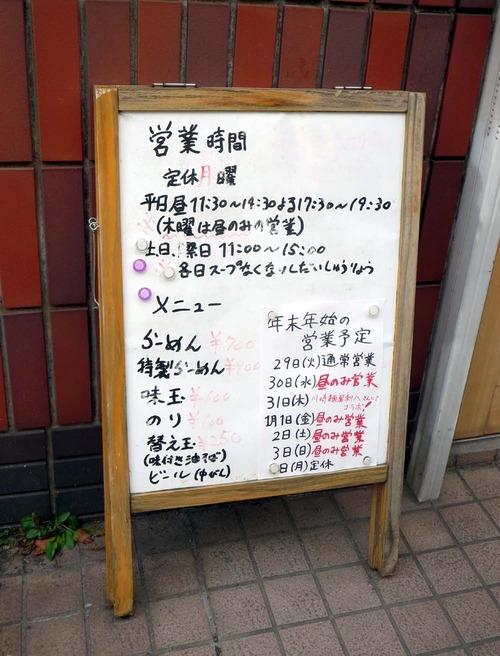 営業時間
定休月曜
平日昼11:30〜14:30よる17:30〜19:30
(木曜は昼のみの営業)
土日、祭日 11:00〜15:00
※各日スープなくなりしだいしゅうりょう
メニュー
らーめん ¥700
特製らーめん ¥900
味玉 ¥100
のり ¥100
替え玉 ¥250
(味付き油そば)
ビール(中びん)
年末年始の
営業予定
29日(火)通常営業
30日(水)昼のみ営業
31日(木)
コラボ!
1月1日(金)昼のみ営業
2日(土)昼のみ営業
3日(日)昼のみ営業
日(月)定休